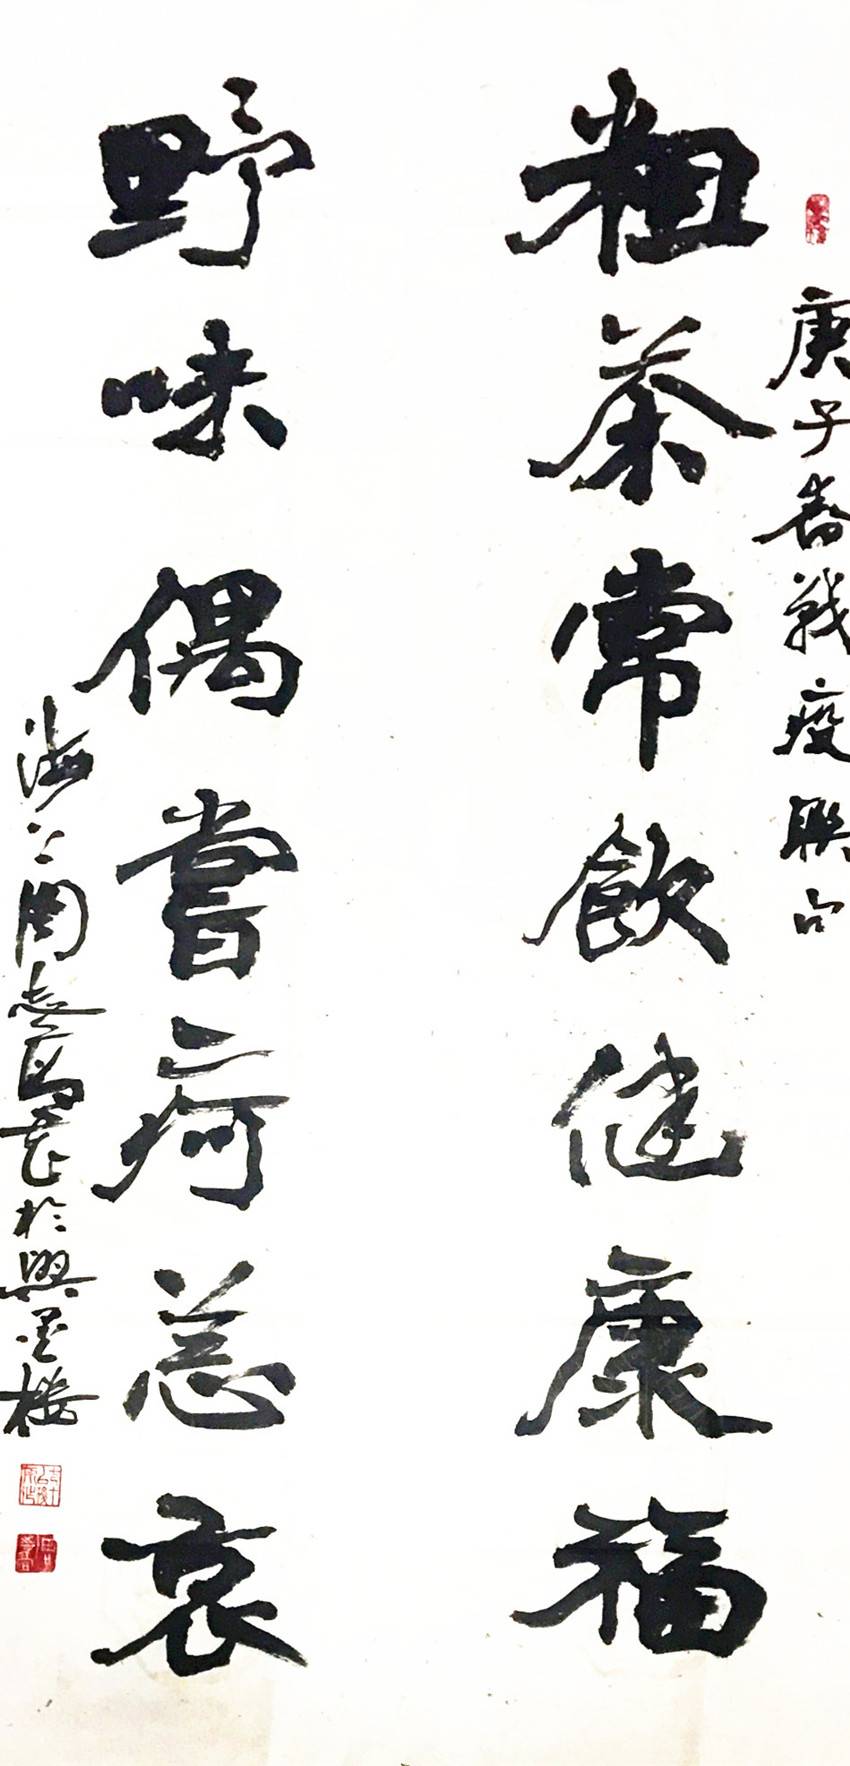 庚子春戰疫聯句
粗茶常飲健康福
野味偶嘗疴恙哀
海上周志高書於興墨樓